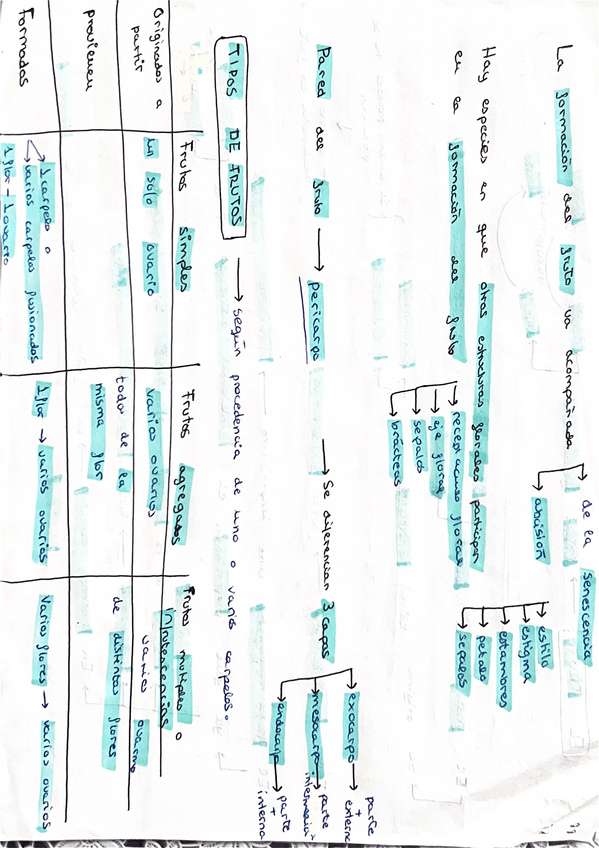 La formación del fruto va acompañada
de la senescencia
abcisión
estilo
estigma
estambres
petalo
sepalos
Hay especies en que otras estructuras florales participan
en la formación del fruto
receptaculo floral
eje floral
sepalos
brácteas
Pared del fruto → pericarpo → Se diferencian 3 capas
exocarpo → parte + externa
mesocarpo → parte intermedia
endocarpo → parte + interna
TIPOS DE FRUTOS → según procedencia de uno o varios carpelos.
Frutos simples
Frutos agregados
Frutos multiples o
infrutescencias
Originados a
partir
un solo ovario
varios ovarios
varios ovarios
provienen
todos de la
misma flor
de distintas flores
Formados
1 carpelo o
varios carpelos fusionados
1 flor - 1 ovario
1 flor → varios ovarios
Varias flores → varios ovarios